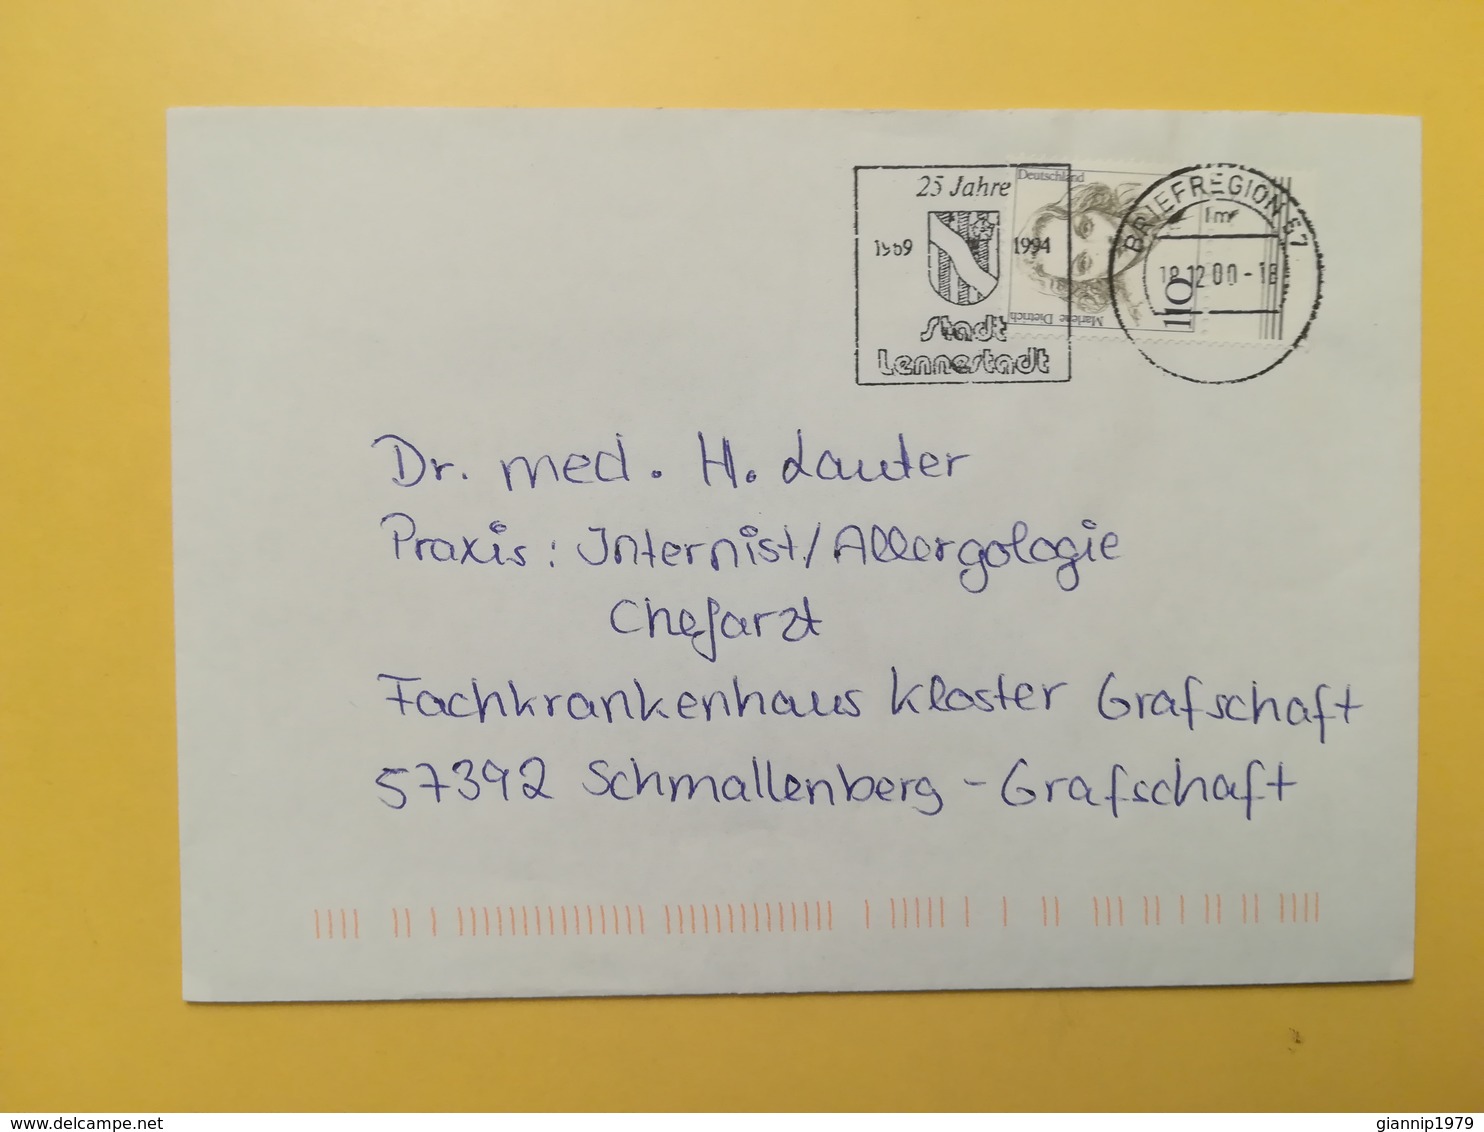 25 Jahre
1969 1994
Stadt
Lennestadt
Deutschland
110
Marlene Dietrich
BRIEFREGION 57
1m
18.12.00-18
Dr. med. H. Lauter
Praxis: Internist/Allergologie
Chefarzt
Fachkrankenhaus Kloster Grafschaft
57392 Schmallenberg - Grafschaft
www.delcampe.net
giannip1979